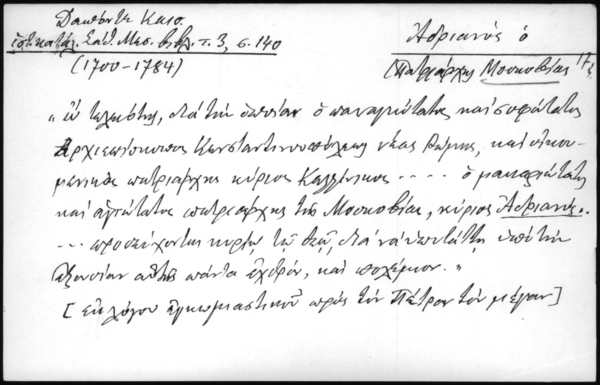 Δαπόντε Καισ.
ἱστ. κατάλ. Σάθ. Μεσ. βιβλ. τ. 3, σ. 140
(1700-1784)
Ἀδριανός ὁ
(Πατριάρχης Μοσκοβίας 17
" διὰ τὴν ὁποίαν ὁ παναγιώτατος καὶ σοφώτατος
Ἀρχιεπίσκοπος Κωνσταντινουπόλεως νέας Ῥώμης, καὶ οἰκου-
μενικὸς πατριάρχης κύριος Καλλίνικος . . . . ὁ μακαριώτατος
καὶ ἁγιώτατος πατριάρχης τῆς Μοσκοβίας, κύριος Ἀδριανὸς..
... προσεύχονται τῷ θεῷ, διὰ νὰ ὑποτάξῃ ὑπὸ τὴν
ἐξουσίαν αὐτῆς πάντα ἐχθρόν, καὶ πολέμιον."
[ἐκ λόγου ἐγκωμιαστικοῦ πρὸς τὸν Πέτρον τὸν μέγαν]